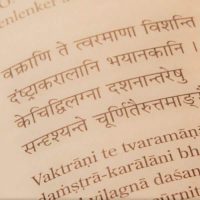 enlenker
वक्त्राणि ते त्वरमाणा विशन्ति
दंष्ट्राकरालानि भयानकानि ।
केचिद्विलग्ना दशनान्तरेषु
सन्दृश्यन्ते चूर्णितैरुत्तमाङ्
Vaktrāṇi te tvaramāṇ
daṁṣṭrā-karālāni bh
vilagnā daśan